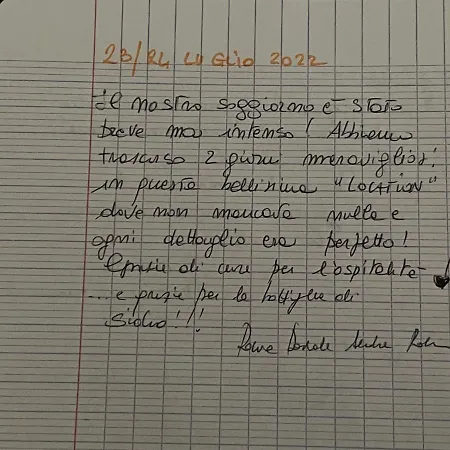 23/24 LUGLIO 2022
Il nostro soggiorno è stato
breve ma intenso! Abbiamo
trascorso 2 giorni meravigliosi
in questa bellinina "LOCATION"
dove non mancava nulla e
ogni dettaglio era perfetto!
Grazie di cuore per l'ospitalità
... e grazie per la bottiglia di
Sidro!!!